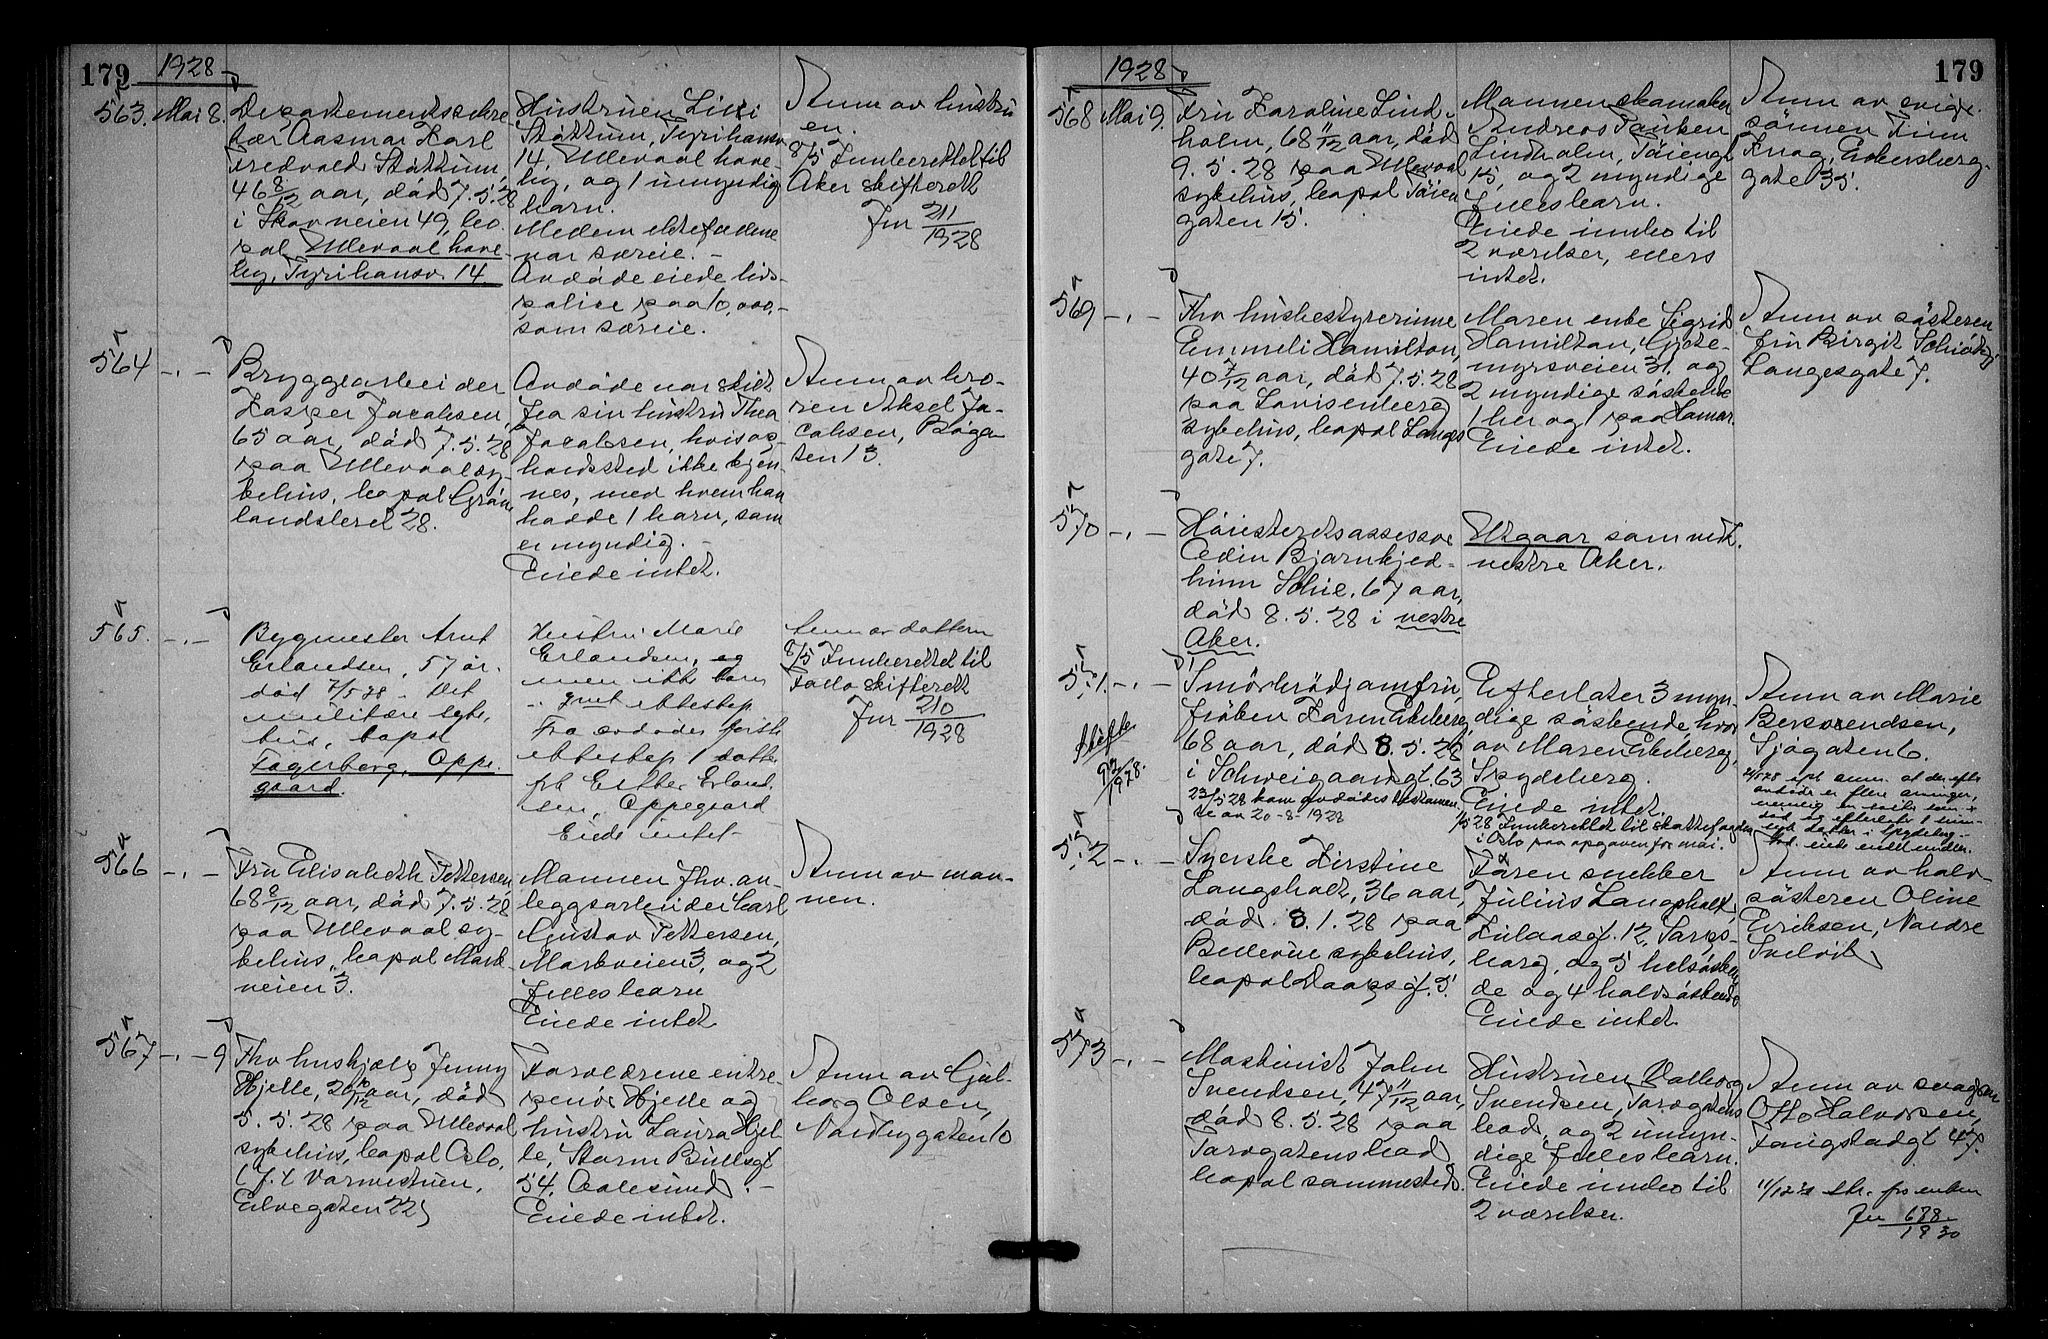 179
1928
563. Mai 8.
Departementssekre
tær Aasmar Karl
Fredvold Støttum,
46 8/12 aar, død 7.5.28
i Skovveien 49, bo
pæl Ullevaal have
by, Tyrihansv. 14.
Hustruen Lilli
Støttum, Tyrihansv
14, Ullevaal have-
by, og 1 umyndig
barn.
Mellem ektefællene
var særeie. -
Avdøde eiede livs-
police paa 10,000,-
som særeie.
Anm av hustru
en.
8/5 Innberettet til
Aker skifterett
Jnr 211/1928
564 -.-
Bryggearbeider
Kasper Jacobsen,
65 aar, død 7.5.28
paa Ullevaal sy-
kehus, bopæl Grøn
landsleret 28.
Avdøde var skilt
fra sin hustru Thea
Jacobsen, hvis op-
holdssted ikke kjen-
nes, med hvem han
hadde 1 barn, som
er myndig. -
Eiede intet.
Anm av bro-
ren Aksel Ja-
cobsen, Bøga
ten 13.
565. -.-
Bygmester Arnt
Erlandsen, 57 år.
død 7/5 28 - Det
militære syke,
hus, bopæl
Fagerberg, Oppe
gaard.
Hustru Marie
Erlandsen, og
men ikke barn
i ektesk
Fra avdødes første
ekteskap 1 datter
frk Esther Erland
sen, Oppegaard
Eiede intet -
Anm av datteren
8/5 Innberettet til
Follo skifterett
Jnr 210/1928
566 -.-
Fru Elisabeth Pettersen
68 9/12 aar, død 7.5.28
paa Ullevaal sy-
kehus, bopæl Mark
veien 3.
Mannen fhv. an-
leggsarbeider Carl
Gustav Pettersen,
Markveien 3, og 2
felles barn
Eiede intet
Anm av man-
nen.
567 -.- 9
Fhv hushjelp Jenny
Hjelle, 26 10/12 aar, død
5.5.28 paa Ullevaal
sykehus, bopæl Oslo,
(f.t Varmestuen,
Elvegaten 22)
Forældrene entre-
prenør Hjelle og
hustru Laura Hjel
le, Storm Bullsgt
54, Aalesund. -
Eiede intet.
Anm av Gjul-
borg Olsen,
Nordbygaten 10
1928
179
568 Mai 9.
Fru Karoline Lind-
holm, 68 11/12 aar, død
9.5.28 paa Ullevaal
sykehus, bopæl Tøien
gaten 15.
Mannen skomaker
Andreas Pauken
Lindholm, Tøiengt
15, og 2 myndige
felles barn.
Eiede innbo til
2 værelser, ellers
intet.
Anm av svige-
sønnen Finn
Frog, Eckersberg-
gate 35.
569 -.-
Fhv husbestyrerinne
Emmeli Hamilton,
40 7/12 aar, død 7.5.28
paa Lovisenberg
sykehus, bopæl Langes
gate 7.
Moren enke Sigrid
Hamilton, Gjete-
myrsveien 31, og
2 myndige søskende
1 her og 1 paa Hamar.
Eiede intet.
Anm av søsteren
fru Birgit Schiøtz
Langesgate 7.
570 -.-
Høiesteretsassessor
Odin Bjarnhjed-
hinn Schie, 67 aar,
død 8.5.28 i vestre
Aker.
Utgaar som vedk.
vestre Aker.
571. -.-
Smørbrødjomfru,
frøken Karen Ekeberg,
68 aar, død 8.5.28
i Schweigaardsgt. 63
23/5 28 kom avdødes testamen
te av 20-8-1928
Efterlater 3 myn-
dige søskende, hvor
av Maren Ekeberg,
Spydeberg.
Eiede intet.
1/6 28 Innberettet til skattefogden
i Oslo paa opgaven for mai.
Anm av Marie
Berovendsen,
Sjøgaten 6.
572 -.-
Syerske Kirstine
Langsholt, 36 aar,
død 8.1.28 paa
Bellevue sykehus,
bopæl Daasgt. 5.
Faren snekker
Julius Langsholt
Kulaasgt. 12, Sarps-
borg, og 5 helsøsken
de og 4 halvsøskende
Eiede intet
Anm av halv-
søsteren Oline
Eriksen, Nordre
Svelvik
573 -.-
Maskinist John
Svendsen, 47 11/12 aar,
død 8.5.28 paa
Torvgatens bad
bopæl sammesteds.
Hustruen Valborg
Svendsen, Torvgatens
bad, og 2 umyn-
dige felles barn.
Eiede innbo til
2 værelser.
Anm av svogeren
Otto Halvorsen,
Fougstadgt 47.
11/12 28 skr. fra enken
Jnr 678/1930